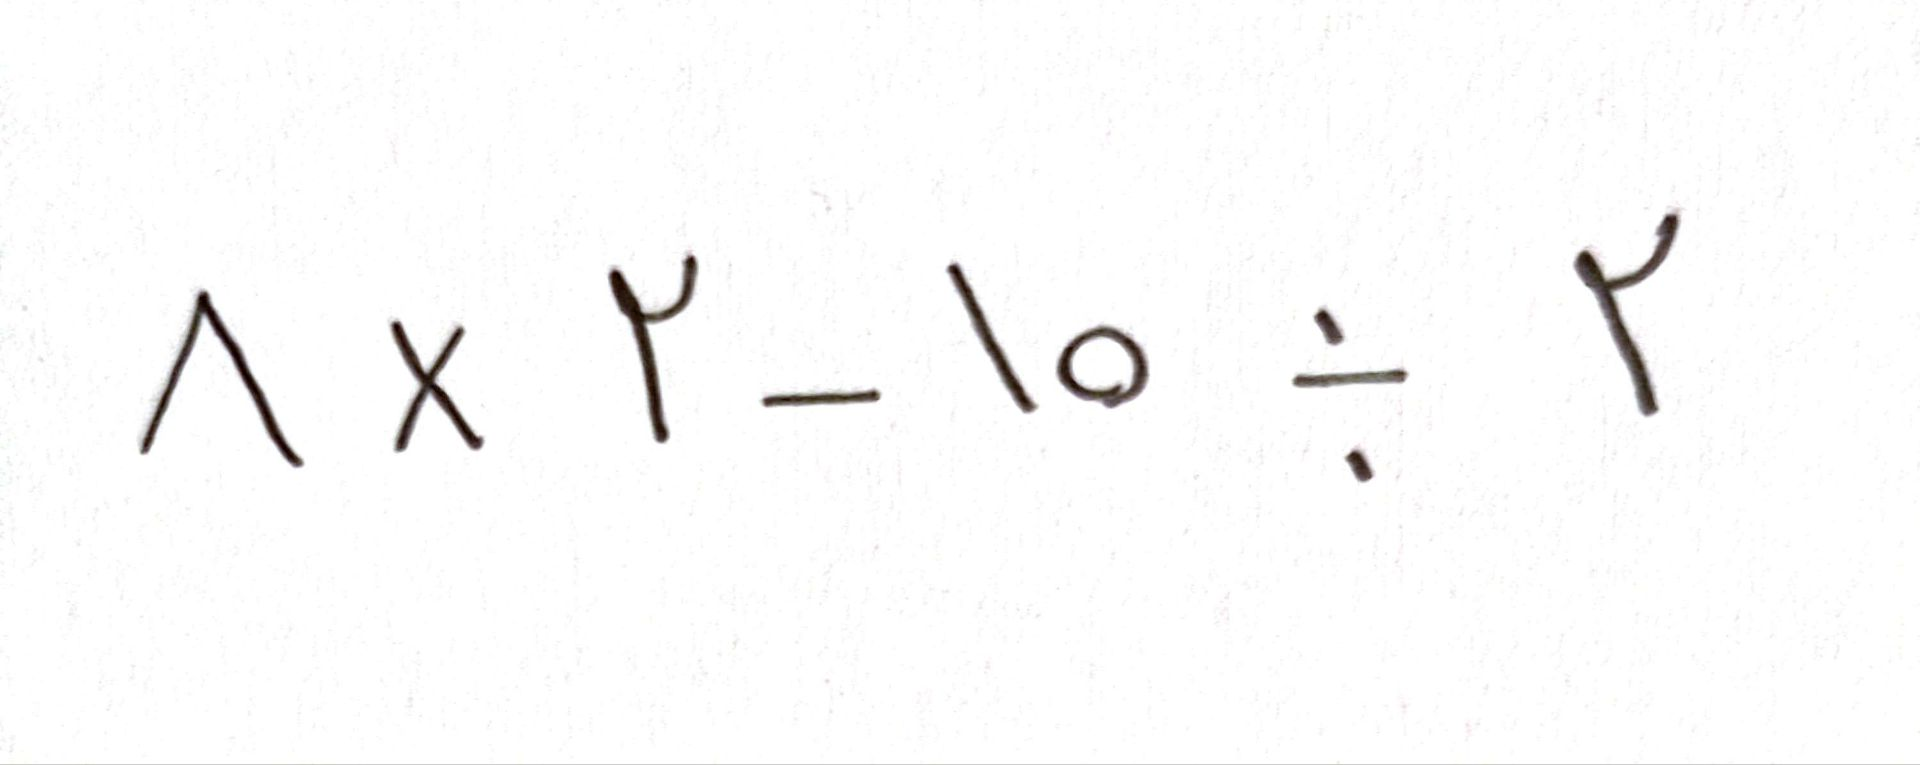 ۸ × ۲ - ۱۵ ÷ ۲